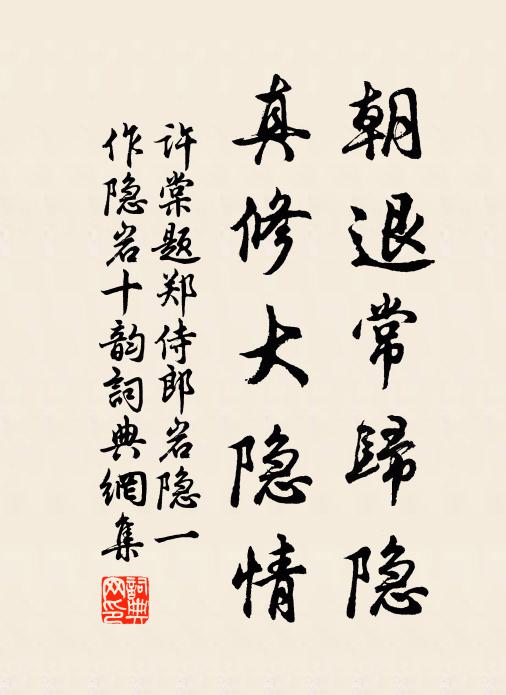 朝退常歸隐
真修大隐情
许棠题郑侍郎岩隐一
作隐岩十韵詞典網集
詞典网印